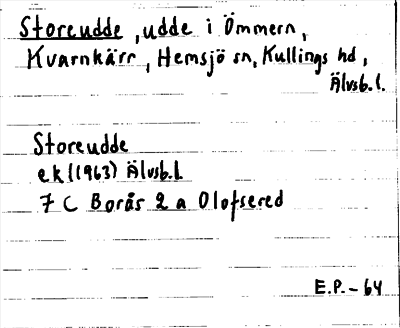 Storeudde, udde i Ömmern,
Kvarnkärr, Hemsjö sn, Kullings hd,
Älvsb.l.
Storeudde
ek (1963) Älvsb.l.
7 C Borås 2 a Olofsered
E.P. - 64